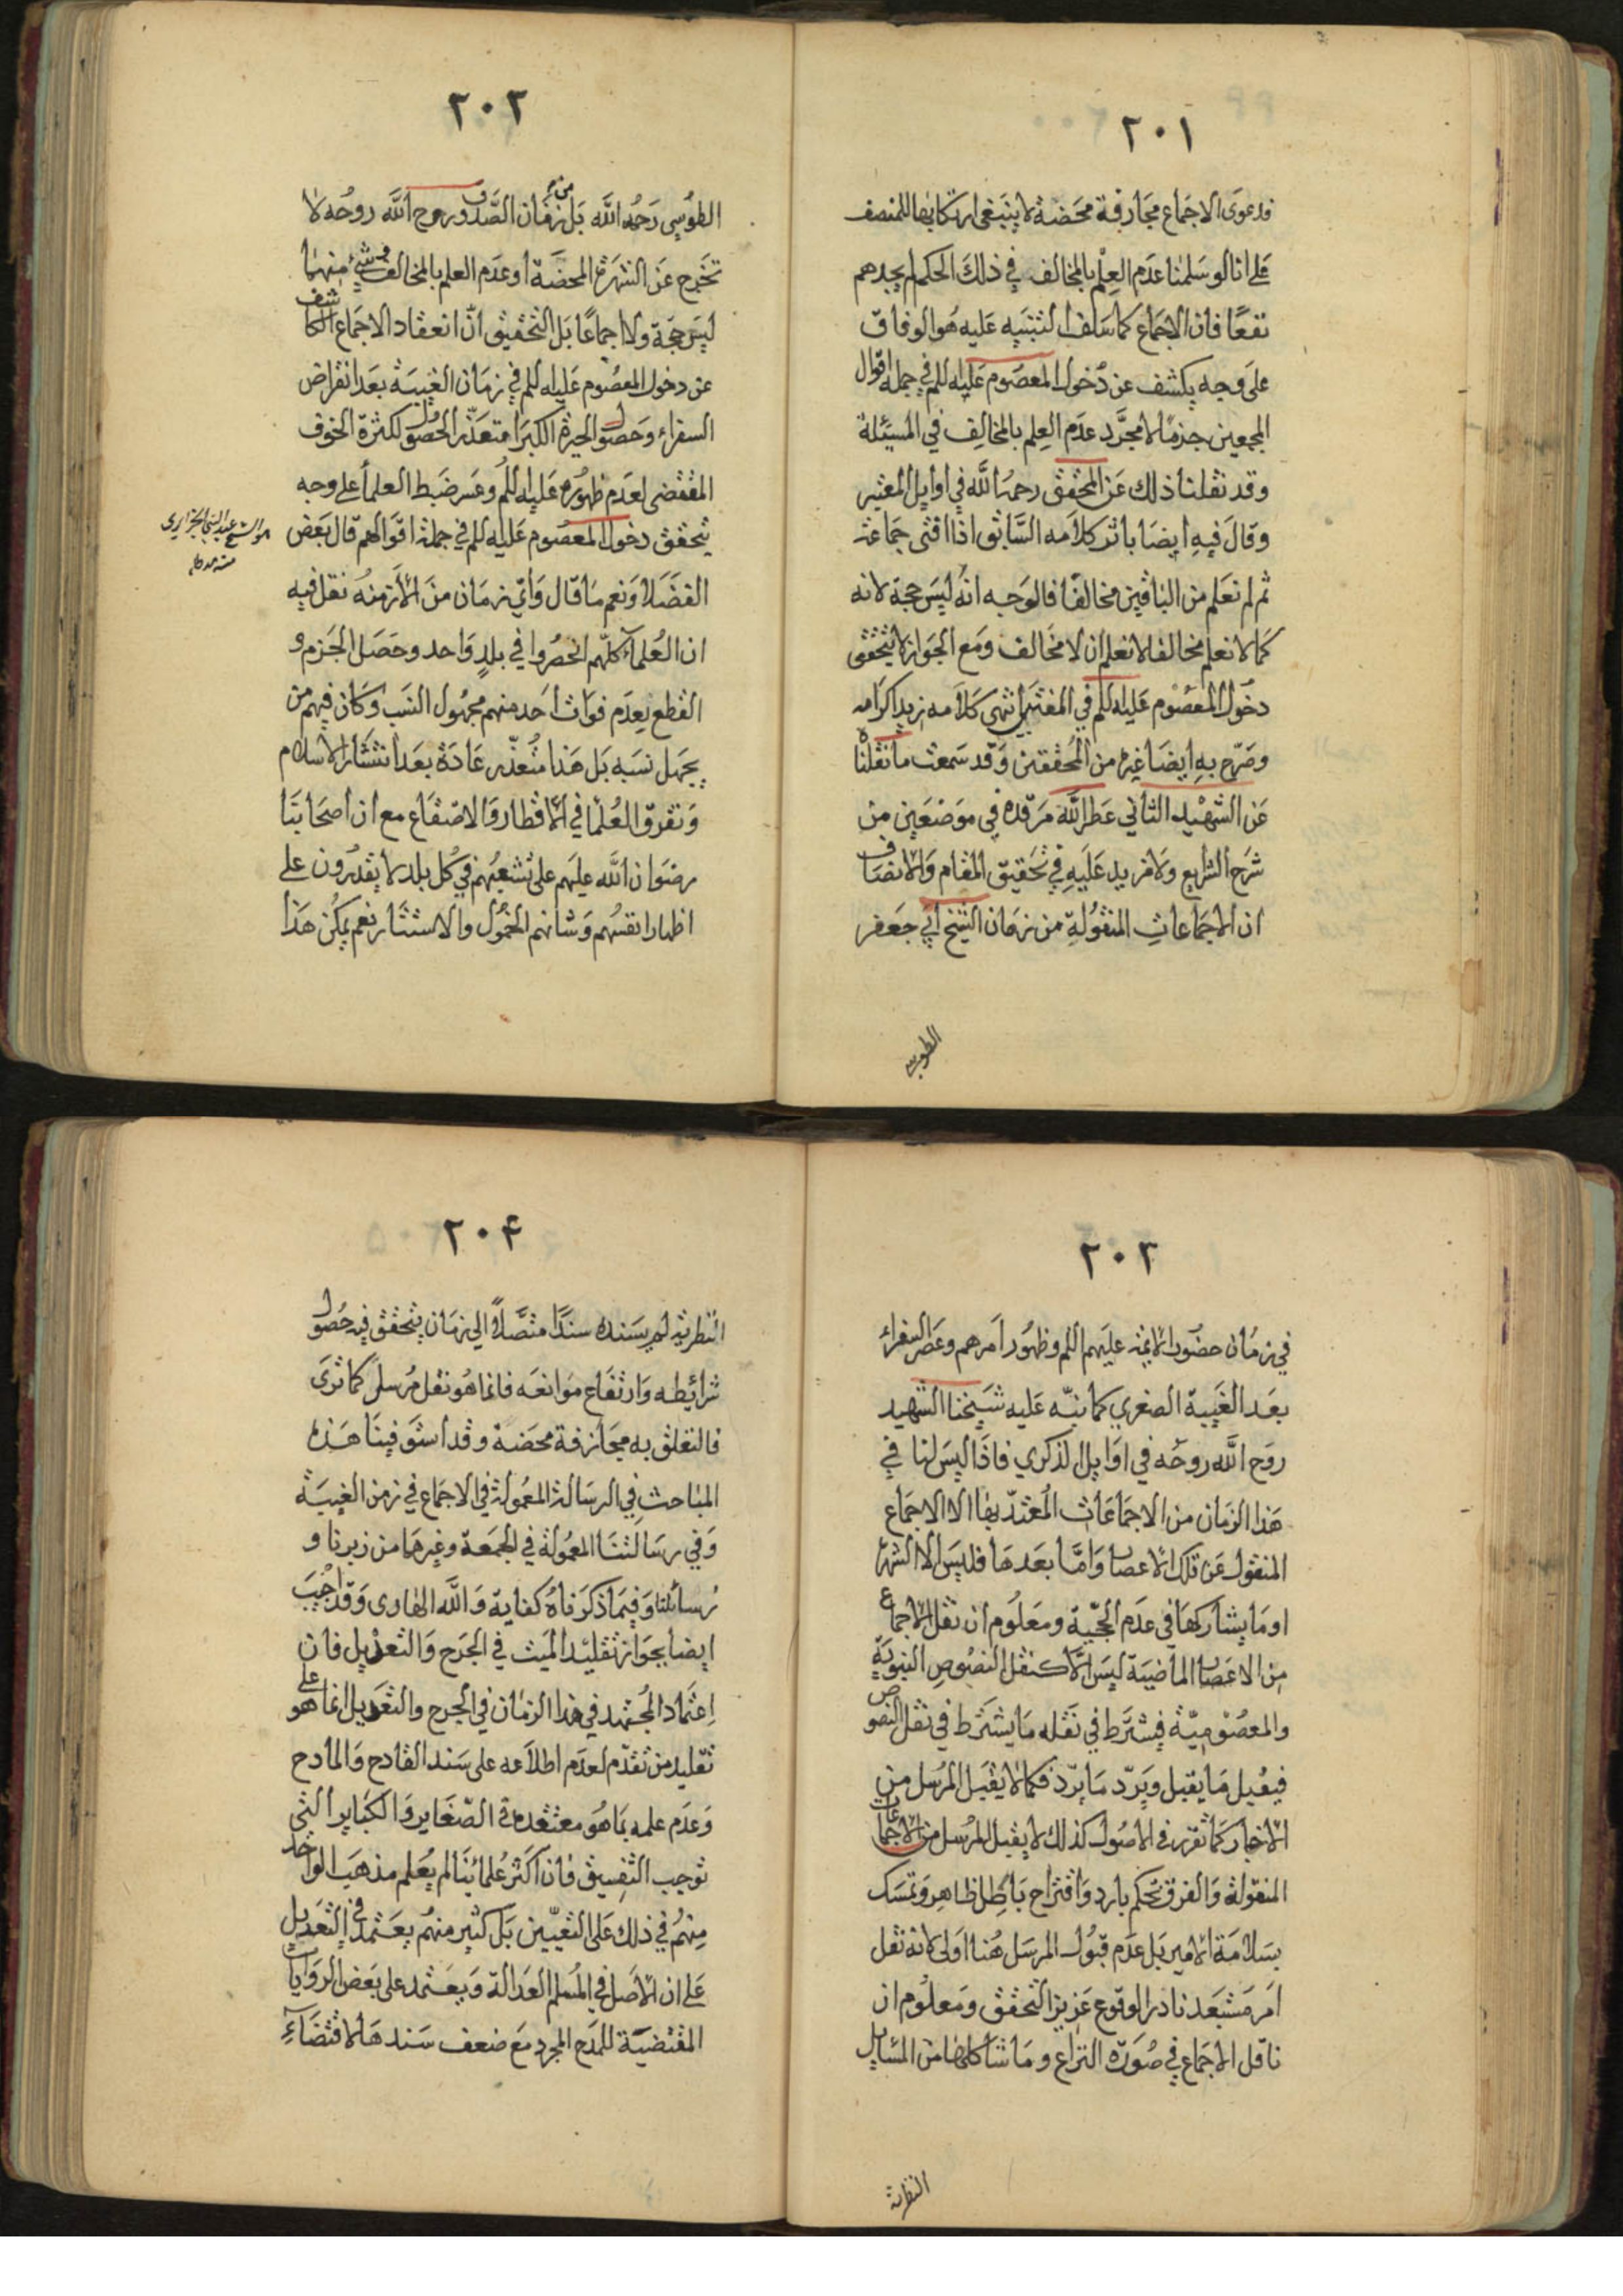 ٢٠١
فدعوى الاجماع مجازفة محضة لا ينبغي ارتكابها للمنصف
على انا لو سلمنا عدم العلم بالمخالف في ذلك الحكم لم يجدهم
نفعًا فان الاجماع كما سلف التنبيه عليه هو الوفاق
على وجه يكشف عن دخول المعصوم عليه السلم في جملة اقوال
المجمعين جزمًا لا مجرّد عدم العلم بالمخالف في المسئلة
وقد نقلنا ذلك عن المحقق رحمه الله في اوايل المعتبر
وقال فيه ايضا باثر كلامه السّابق اذا افتى جماعة
ثم لم نعلم من الباقين مخالفًا فالوجه انه ليس حجة لانه
كما لا نعلم مخالفا لا نعلم ان لا مخالف ومع الجواز لا يتحقق
دخول المعصوم عليه السلم في المفتين انتهى كلامه زيد اكرامه
وصرّح به ايضا غيره من المحققين وقد سمعت ما نقلناه
عن الشهيد الثاني عطر الله مرقده في موضعين من
شرح الشرايع ولا مزيد عليه في تحقيق المقام والانصاف
ان الاجماعات المنقولة من زمان الشيخ ابي جعفر
الطوسي
٢٠٢
الطوسي رحمه الله بل من زمان الصّدوق روح الله روحه لا
تخرج عن الشهرة المحضة او عدم العلم بالمخالف وشيء منهما
ليس حجة ولا اجماعًا بل التحقيق انّ انعقاد الاجماع الكاشف
عن دخول المعصوم عليه السلم في زمان الغيبة بعد انقراض
السفراء وحصول الحيرة الكبرا متعذّر الحصول لكثرة الخوف
المقتضى لعدم ظهوره عليه السلم وعسر ضبط العلما على وجه
يتحقق دخول المعصوم عليه السلم في جملة اقوالهم قال بعض
هو الشيخ عبد النبي الجزايري
الفضلا ونعم ما قال وايّ زمان من الأزمنة نقل فيه
ان العلماء كلّهم انحصروا في بلد واحد وحصل الجزم و
القطع بعدم فوات احد منهم مجهول النسب وكان فيهم من
يجهل نسبه بل هذا متعذّر عادة بعد انتشار الاسلام
وتفرق العلما في الاقطار والاصقاع مع ان اصحابنا
رضوان الله عليهم على تشعبهم في كل بلد لا يقدرون على
اظهار انفسهم وشانهم الخمول والاستتار نعم يمكن هذا
٢٠٣
في زمان حضور الائمة عليهم السلم وظهور امرهم وعصر السفراء
بعد الغيبة الصغرى كما نبّه عليه شيخنا الشهيد
روح الله روحه في اوايل الذكرى فاذا ليس لنا في
هذا الزمان من الاجماعات المعتدّ بها الا الاجماع
المنقول عن تلك الاعصار وامّا بعدها فليس الا الشهرة
او ما يشاركها في عدم الحجّية ومعلوم ان نقل الاجماع
من الاعصار الماضية ليس الّا كنقل النصوص النبويّة
والمعصوميّة فيشترط في نقله ما يشترط في نقل النصوص
فيقبل ما يقبل ويردّ ما يردّ فكما لا يقبل المرسل من
الاخبار كما تقرر في الاصول كذلك لا يقبل المرسل من الاجماعات
المنقولة والفرق تحكم بارد واقتراح باطل ظاهر وتمسك
بسلامة الامير بل عدم قبول المرسل هنا اولى لانه نقل
امر مستبعد نادر الوقوع عزيز التحقق ومعلوم ان
ناقل الاجماع في صورة النزاع وما شاكلها من المسايل
النظرية
٢٠۴
النظرية لم يسنده سندًا متّصلًا الى زمان يتحقق فيه حصول
شرائطه وارتفاع موانعه فانما هو نقل مرسل كما ترى
فالتعلق به مجازفة محضة وقد استوفينا هذه
المباحث في الرسالة المعمولة في الاجماع في زمن الغيبة
وفي رسالتنا المعمولة في الجمعة وغيرها من زبرنا و
رسائلنا وفيما ذكرناه كفاية والله الهادى وقد اجيب
ايضا بجواز تقليد الميت في الجرح والتعديل فان
اعتماد المجتهد في هذا الزمان في الجرح والتعديل انما هو على
تقليد من تقدّم لعدم اطلاعه على سند القادح والمادح
وعدم علمه بما هو معتقده في الصّغاير والكباير التي
توجب التفسيق فان اكثر علمائنا لم يعلم مذهب الواحد
منهم في ذلك على التعيين بل كثير منهم يعتمد في التعديل
على ان الاصل في المسلم العدالة ويعتمد على بعض الروايات
المقتضية للمدح المجرد مع ضعف سندها لاقتضاء